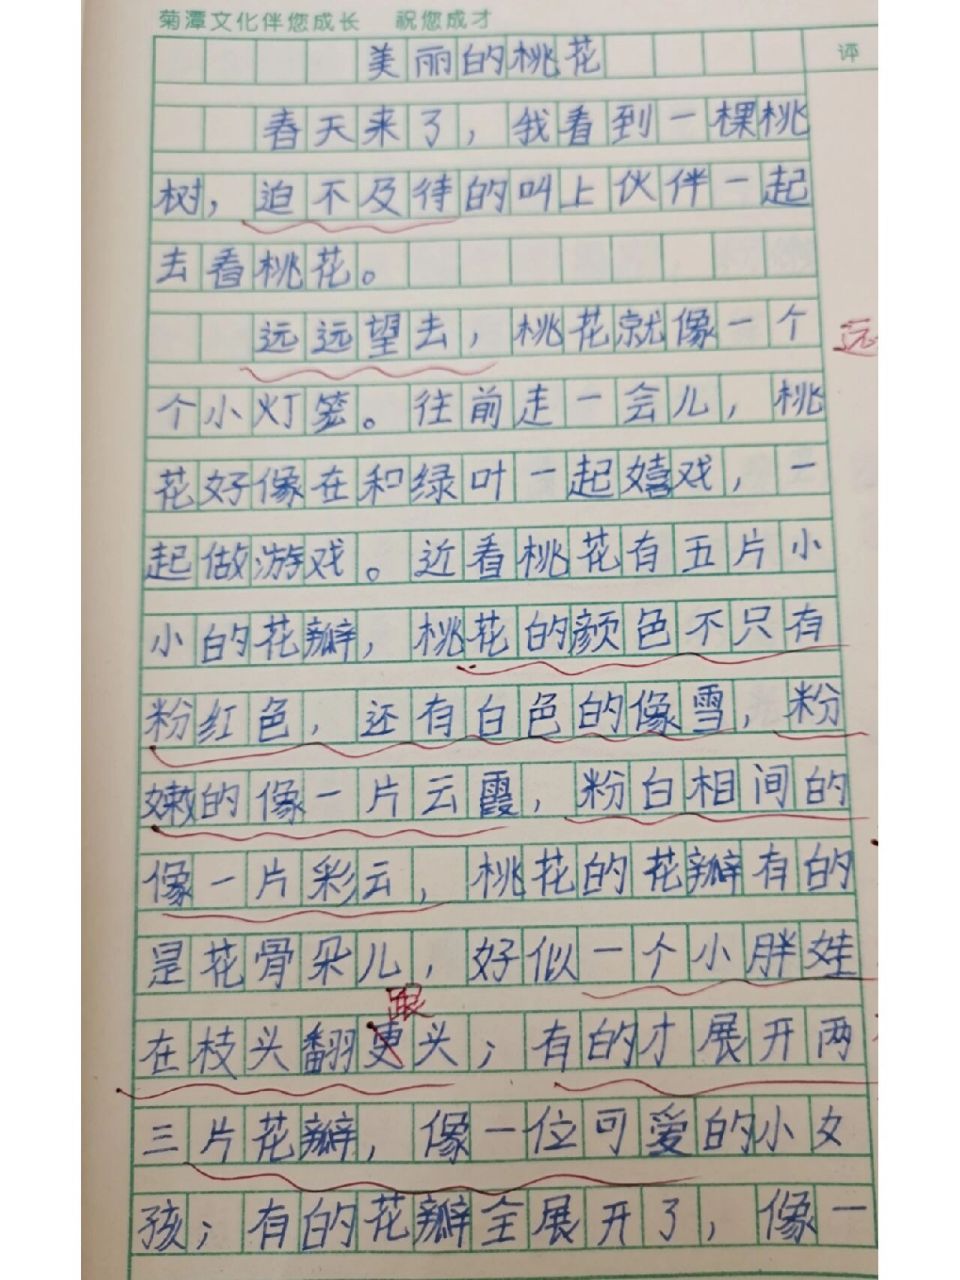 菊潭文化伴您成长 祝您成才
评
美丽的桃花
春天来了，我看到一棵桃
树，迫不及待的叫上伙伴一起
去看桃花。
远远望去，桃花就像一个
远
个小灯笼。往前走一会儿，桃
花好像在和绿叶一起嬉戏，一
起做游戏。近看桃花有五片小
小的花瓣，桃花的颜色不只有
粉红色，还有白色的像雪，粉
嫩的像一片云霞，粉白相间的
像一片彩云，桃花的花瓣有的
是花骨朵儿，好似一个小胖娃
跟
在枝头翻更头；有的才展开两
三片花瓣，像一位可爱的小女
孩；有的花瓣全展开了，像一